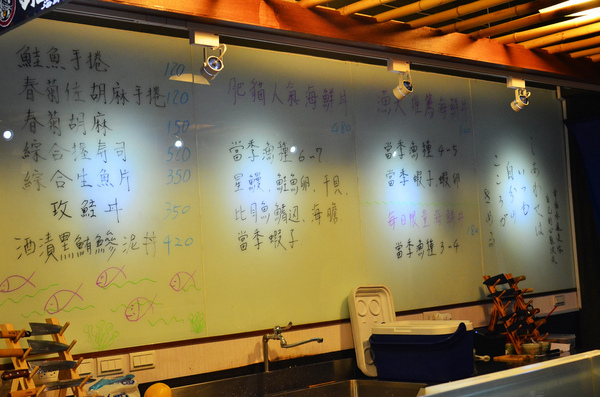 鮭魚手捲 120
春菊佐胡麻手捲 120
春菊胡麻 150
綜合握壽司 500
綜合生魚片 350
炙鮭丼 350
酒漬黑鮪鰺泥丼 420
肥貓人氣海鮮丼
680
當季魚種 6-7
星鰻、鮭魚卵、干貝、
比目魚鰭邊、海膽
當季蝦子
魚人推薦海鮮丼
當季魚種 4-5
當季蝦子、蝦卵
每日限量海鮮丼
當季魚種 3-4